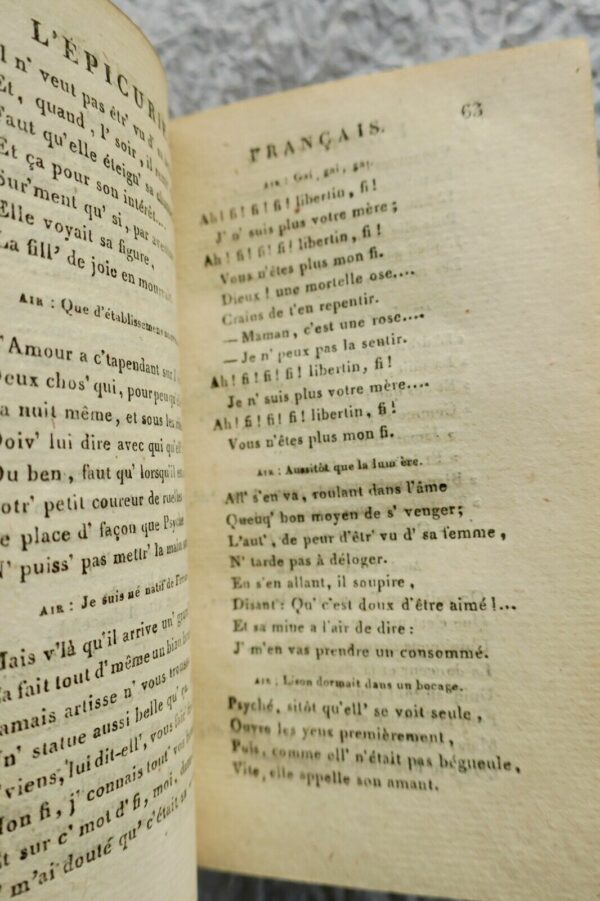 L'ÉPICURI
n' veut pas êtr' vu d'
Et, quand, l' soir, il
Faut qu'elle éteign' sa
Et ça pour son intérêt...
Sur'ment qu' si, par
Elle voyait sa figure,
La fill' de joie en
AIR : Que d'établissemens
L'Amour a c'tapendant sur
Deux chos' qui, pour peu qu'
La nuit même, et sous les
Doiv' lui dire avec qui qu'ell'
Ou ben, faut qu' lorsqu'il
Notr' petit coureur de ruelles
Se place d' façon que Psyché
N' puiss' pas mettr' la main
AIR : Je suis né natif de
Mais v'là qu'il arrive un
Ça fait tout d'même un
Jamais artisse n' vous
Un' statue aussi belle qu'
Viens, lui dit-ell', vous
Mon fi, j' connais tout' vos
Et sur c' mot d' fi, moi,
J' m'ai douté qu' c'était
63
FRANÇAIS.
AIR : Gai, gai, gai,
Ah! fi! fi! fi! libertin, fi!
J' n' suis plus votre mère;
Ah! fi! fi! fi! libertin, fi!
Vous n'êtes plus mon fi.
Dieux ! une mortelle ose....
Crains de t'en repentir.
— Maman, c'est une rose....
— Je n' peux pas la sentir.
Ah! fi! fi! fi! libertin, fi!
Je n' suis plus votre mère....
Ah! fi! fi! fi! libertin, fi!
Vous n'êtes plus mon fi.
AIR : Aussitôt que la lumière.
All' s'en va, roulant dans l'âme
Queuq' bon moyen de s' venger;
L'aut', de peur d'êtr' vu d' sa femme,
N' tarde pas à déloger.
En s'en allant, il soupire,
Disant : Qu' c'est doux d'être aimé!...
Et sa mine a l'air de dire :
J' m'en vas prendre un consommé.
AIR : Lison dormait dans un bocage.
Psyché, sitôt qu'ell' se voit seule,
Ouvre les yeux premièrement,
Puis, comme ell' n'était pas bégueule,
Vite, elle appelle son amant.